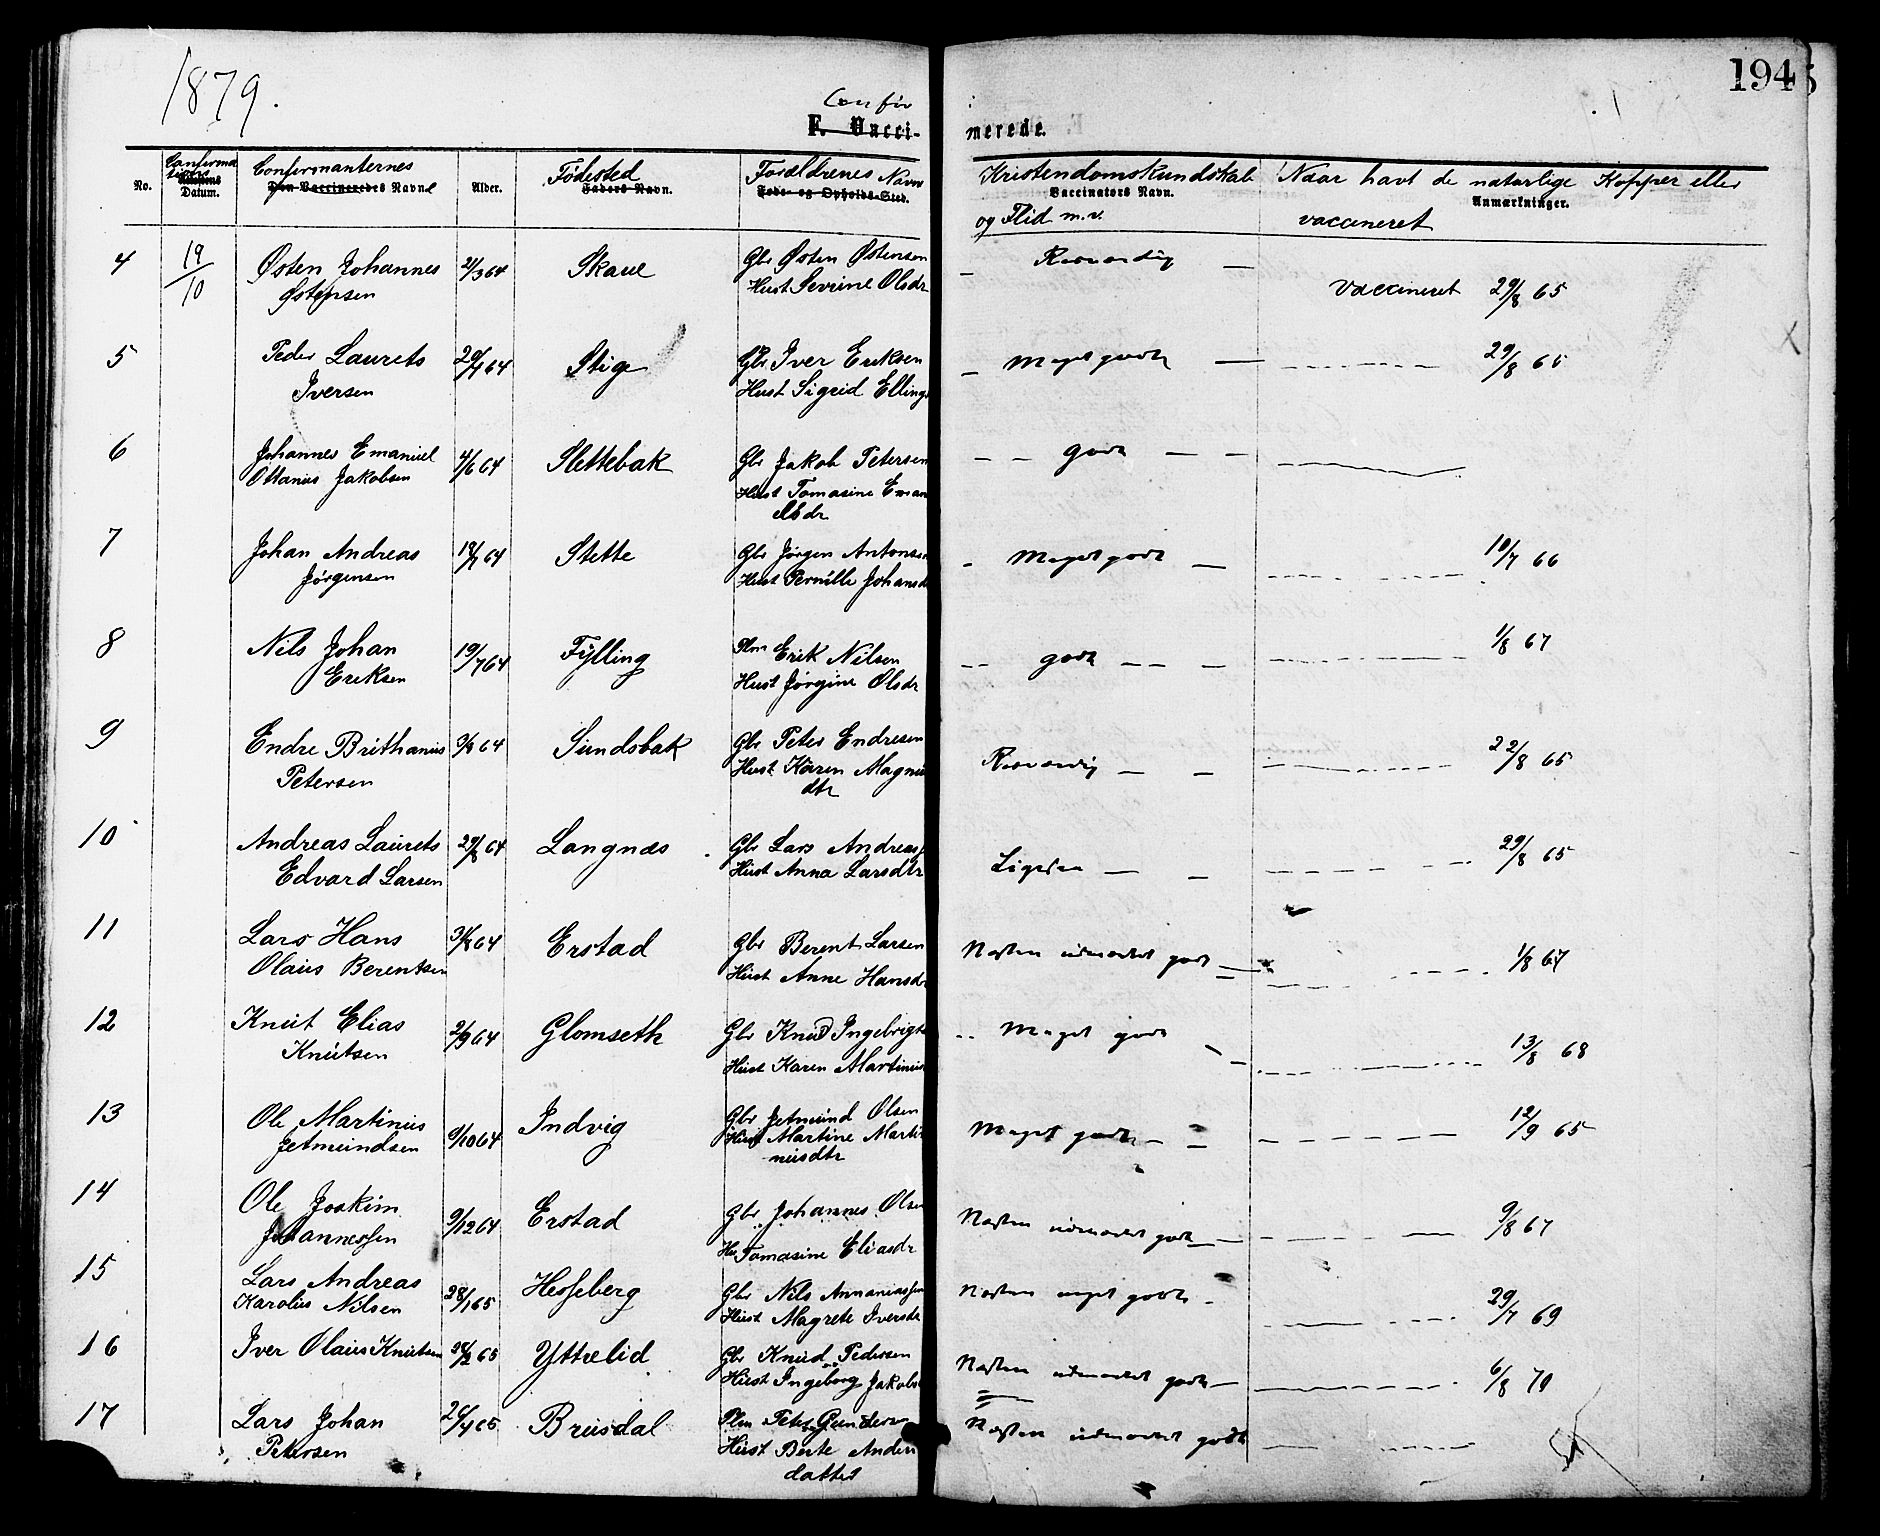 1879.
194
Confir
F. Vacci-
merede.
No.
Confirma
tions
Datum.
Confirmanternes
Den Vaccineredes Navn
Alder.
Fødested
Faders Navn.
Forældrenes Navn
Føde- og Opholds-Sted.
Kristendomskundskab
Vaccinators Navn.
og Flid m.v.
Naar havt de naturlige Kopper eller
Anmærkninger.
vaccineret
4 19/10 Østen Johannes 2/3 64 Skaue Gbr Østen Østensen
Østensen Hust Sevrine Olsdr
vaccineret 29/8 65
5 Peder Laurets 29/4 64 Stige Gbr Iver Eriksen Meget godt 29/8 65
Iversen Hust Sigrid Ellings
6 Johannes Emanuel 4/6 64 Slettebak Gbr Jakob Petersen godt
Ottanius Jakobsen Hust Tomasine Eman
dr
7 Johan Andreas 18/7 64 Slette Gbr Jørgen Antonsen Meget godt 10/7 66
Jørgensen Hust Pernille Johansd
8 Nils Johan 19/7 64 Fylling Plm Erik Nilsen godt 1/8 67
Eriksen Hust Jørgine Olsdr
9 Endre Brithanius 9/8 64 Sundsbak Gbr Peter Endresen 22/8 65
Petersen Hust Karen Magnus
dtr
10 Andreas Laurets 29/8 64 Langnæs Gbr Lars Andreas 29/8 65
Edvard Larsen Hust Anna Larsdtr
Ligesaa
11 Lars Hans 31/8 64 Erstad Gbr Berent Larsen Næsten udmærket godt 1/8 67
Olaus Berentsen Hust Anne Hansdr
12 Knut Elias 2/9 64 Glomseth Gbr Knud Ingebrigts Meget godt 13/8 68
Knutsen Hust Karen Martinus
13 Ole Martinus 9/10 64 Indvig Gbr Jetmund Olsen Meget godt 12/9 65
Jetmundsen Hust Martine Marti
nusdtr
14 Ole Joakim 9/12 64 Erstad Gbr Johannes Olsen Næsten udmærket godt 9/8 67
Johannessen Hu Tomasine Eliasdr
15 Lars Andreas 28/1 65 Hesseberg Gbr Nils Annaniassen Næsten meget godt 29/7 69
Karolius Nilsen Hust Magrete Iversdr
16 Iver Olaus Knutsen 28/2 65 Yttrelid Gbr Knud Pedersen Næsten udmærket godt 6/8 70
Hust Ingeborg Jakobs
17 Lars Johan 26/4 65 Brusdal Plm Peter Gundersen Næsten udmærket godt
Petersen Hust Berte Anders
datter